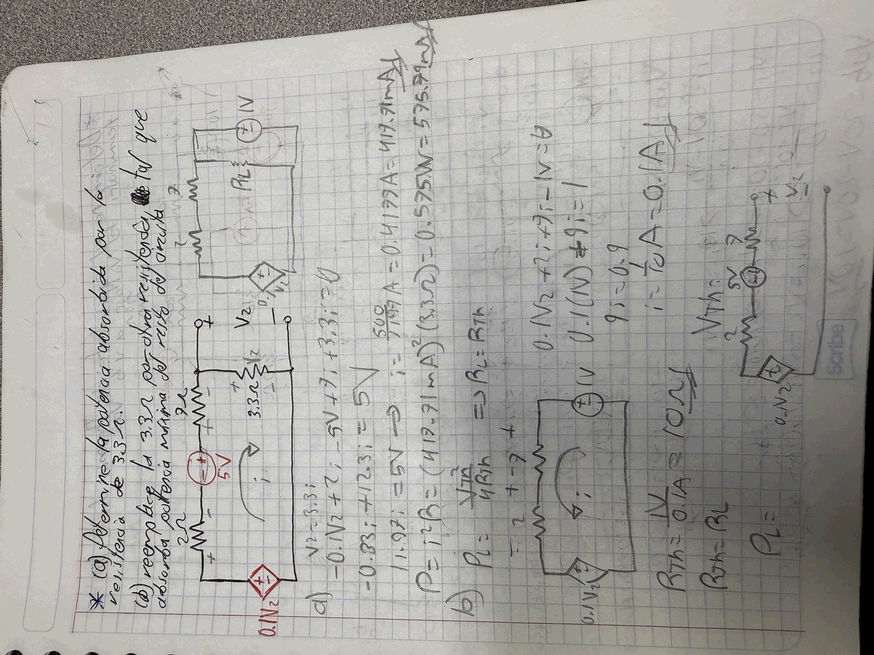 * (a) Determine la potencia absorbida por la
resistencia de 3.3 Ω.
(b) reemplace la 3.3 Ω por otra resistencia tal que
absorba potencia máxima del resto del circuito
2Ω
5V
7Ω
+ - - + + -
0.1V2
i
3.3Ω
V2
+
V2
-
2
7
RL
1V
0.1V2
a) V2=3.3i
-0.1V2+2i-5V+7i+3.3i=0
-0.33i+12.3i=5V
11.97i=5V → i=500/1197A=0.4177A=417.71mA
P=i²R=(417.71mA)²(3.3Ω)=0.575W=575.79mW
b) PL=VTh²/4RTh ⇒ RL=RTh
- 2 + - 7 +
0.1V2
i
1V
0.1V2+2i+7i-1V=0
0.1(1V)+9i=1
9i=0.9
i=1/10A=0.1A
RTh=1V/0.1A=10Ω
RTh=RL
VTh=
PL=
2
5V
7
0.1V2
+
V2
-
Scribe